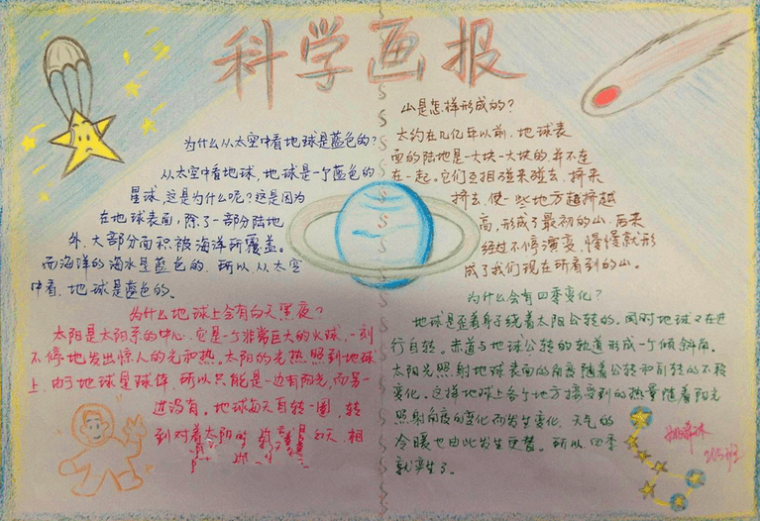 科学画报
为什么从太空中看地球是蓝色的？
从太空中看地球，地球是一个蓝色的
星球，这是为什么呢？这是因为
在地球表面，除了一部分陆地
外，大部分面积被海洋所覆盖。
而海洋的海水是蓝色的，所以，从太空
中看，地球是蓝色的。
为什么地球上会有白天黑夜？
太阳是太阳系的中心，它是一个非常巨大的火球，一刻
不停地发出惊人的光和热。太阳的光热照到地球
上，由于地球是球体，所以只能是一边有阳光，而另一
边没有。地球每天自转一圈，转
到对着太阳的 是白天，相
山是怎样形成的？
大约在几亿年以前，地球表
面的陆地是一大块一大块的，并不连
在一起，它们互相碰来碰去，挤来
挤去，使一些地方越挤越
高，形成了最初的山，后来
经过不停演变，慢慢就形
成了我们现在所看到的山。
为什么会有四季变化？
地球是歪着身子绕着太阳公转的。同时地球又在进
行自转。赤道与地球公转的轨道形成一个倾斜角。
太阳光照射地球表面的角度随着公转和自转的不同
变化。这样地球上各个地方接受到的热量随着阳光
照射角度的变化而发生变化，天气的
冷暖也由此发生更替。所以，四季
就产生了。